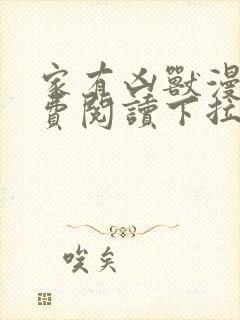 家有凶獸漫
費閱讀下拉
唉矣